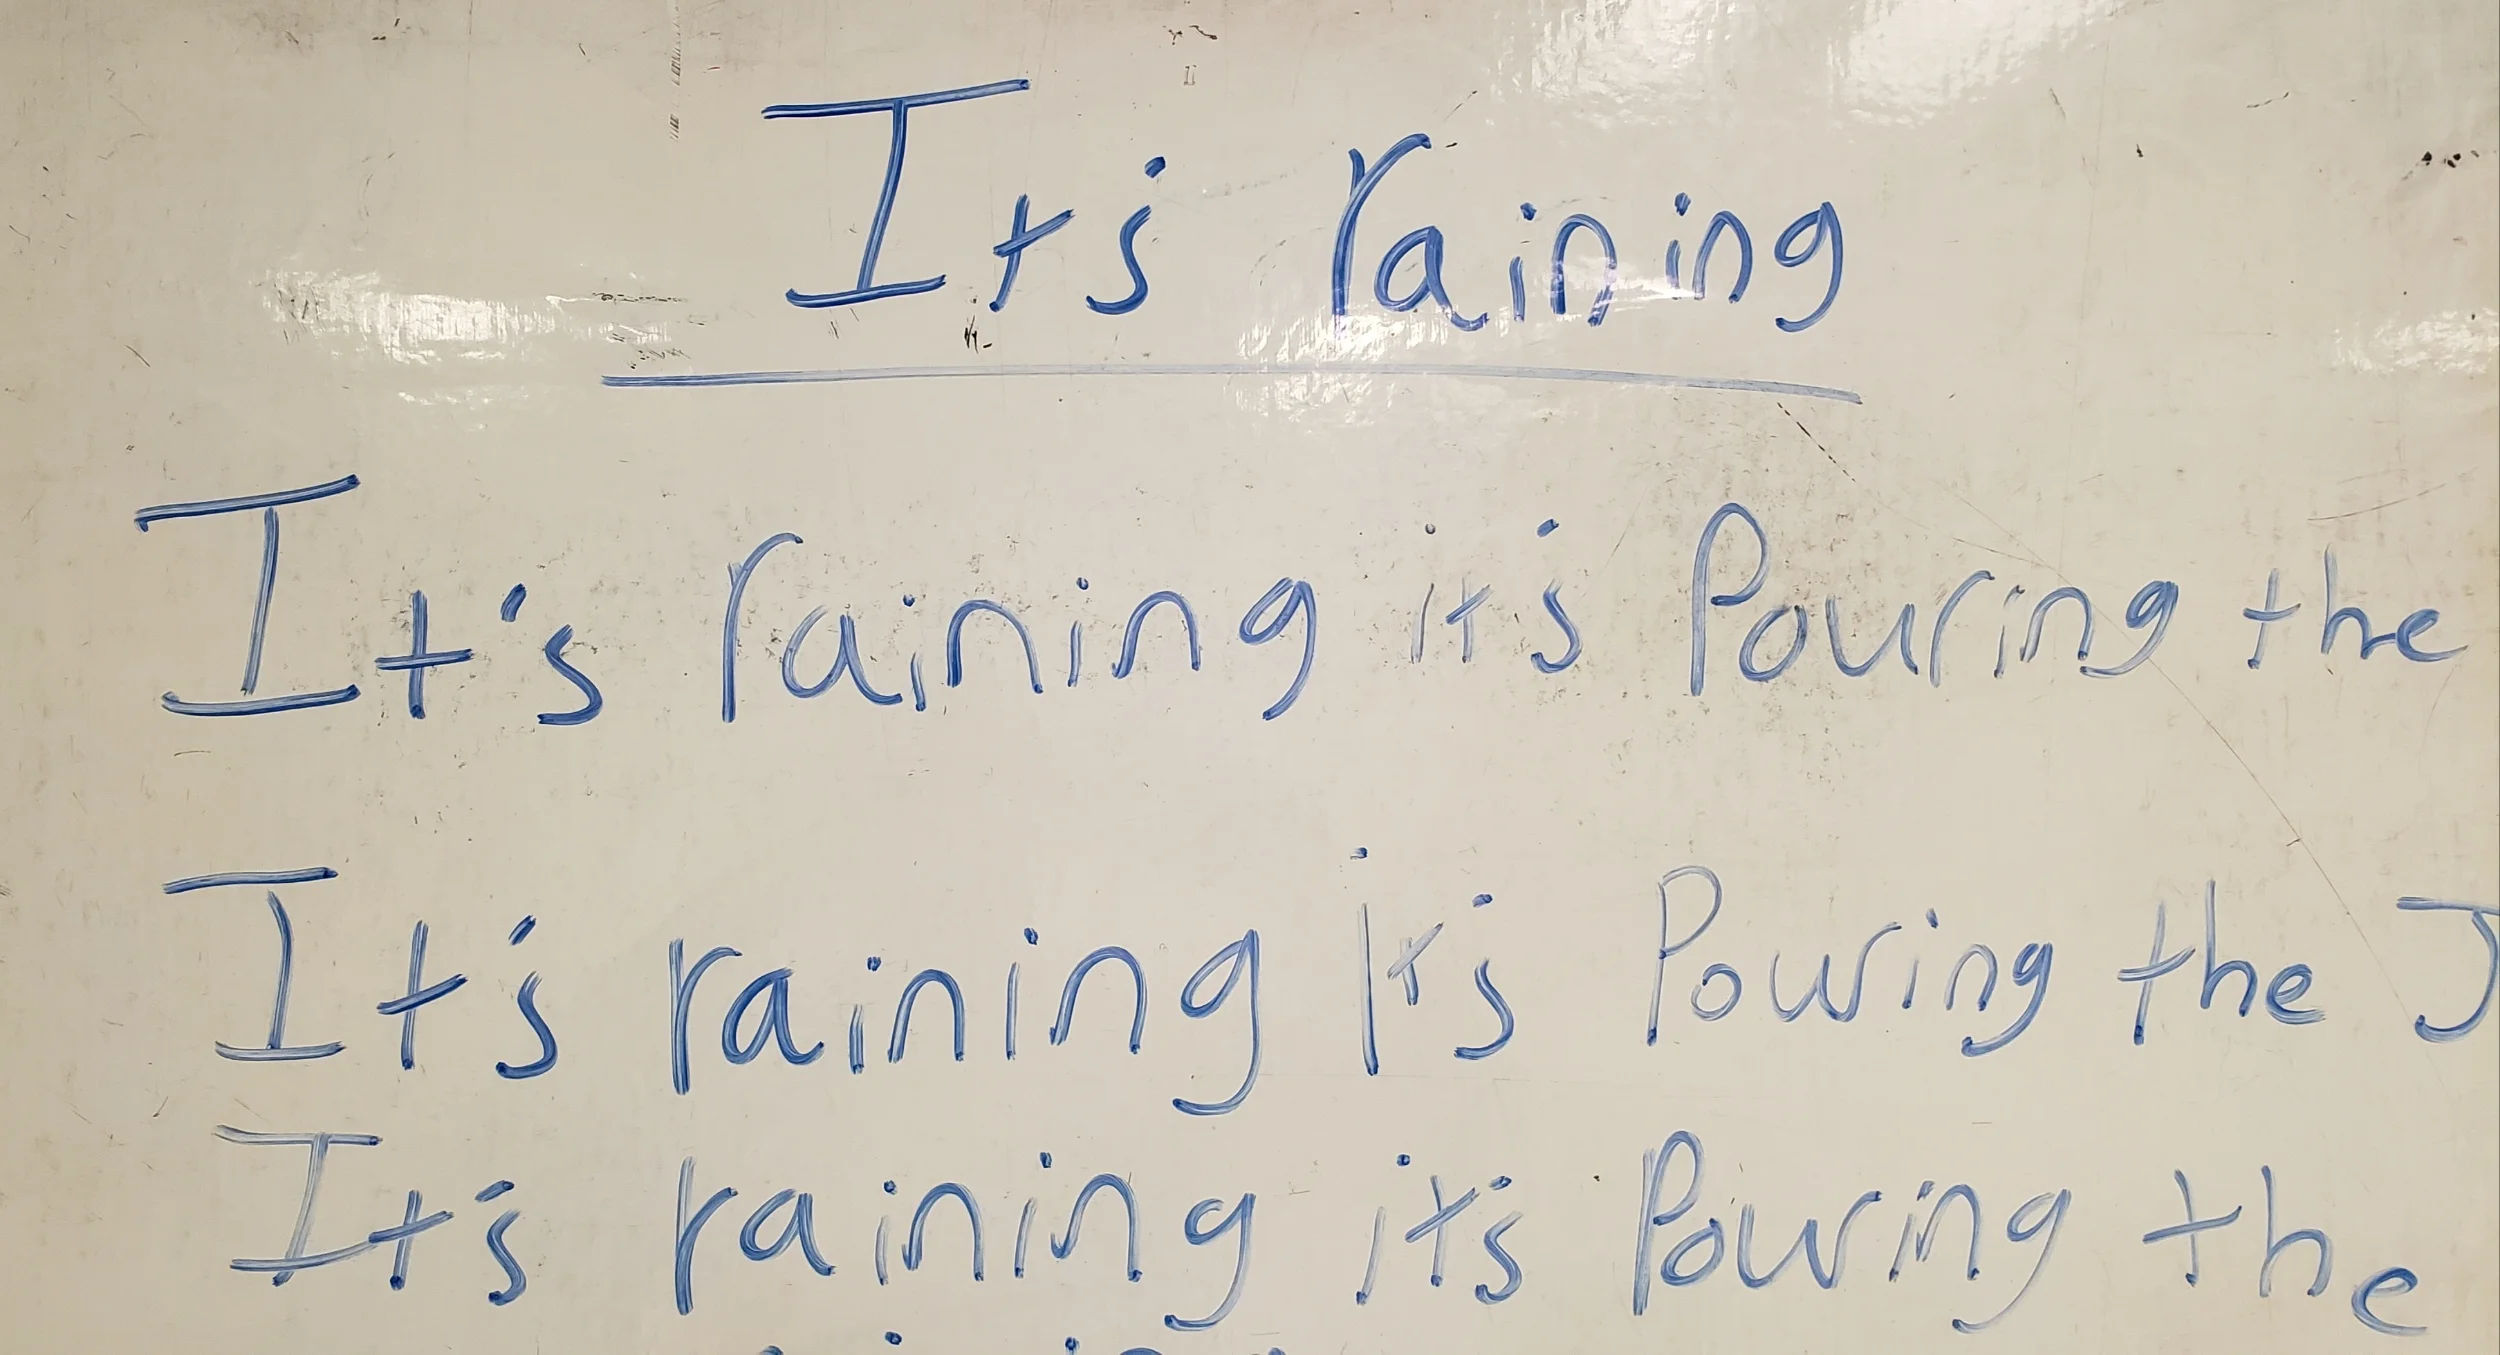 It's raining
It's raining it's Pouring the
It's raining it's Pouring the J
It's raining it's Pouring the